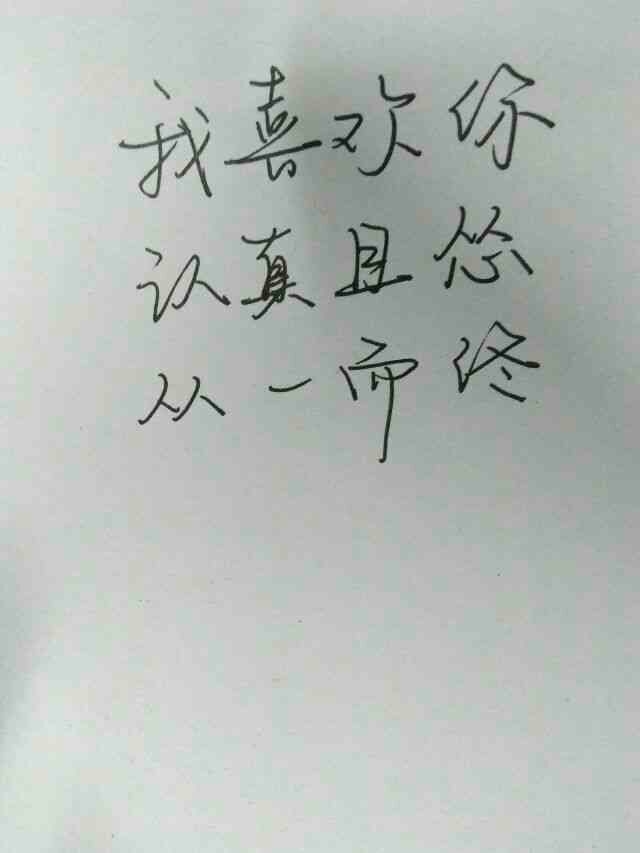 我喜欢你
认真且怂
从一而终